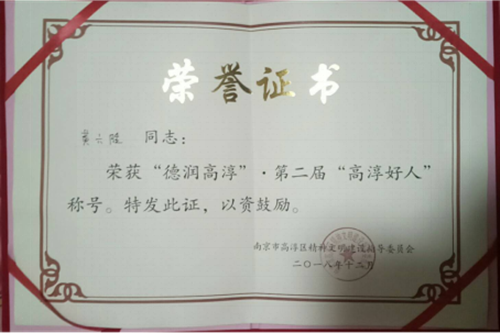 荣誉证书
同志：
荣获“德润高淳”·第二届“高淳好人”
称号。特发此证，以资鼓励。
南京市高淳区精神文明建设指导委员会
二〇一八年十二月